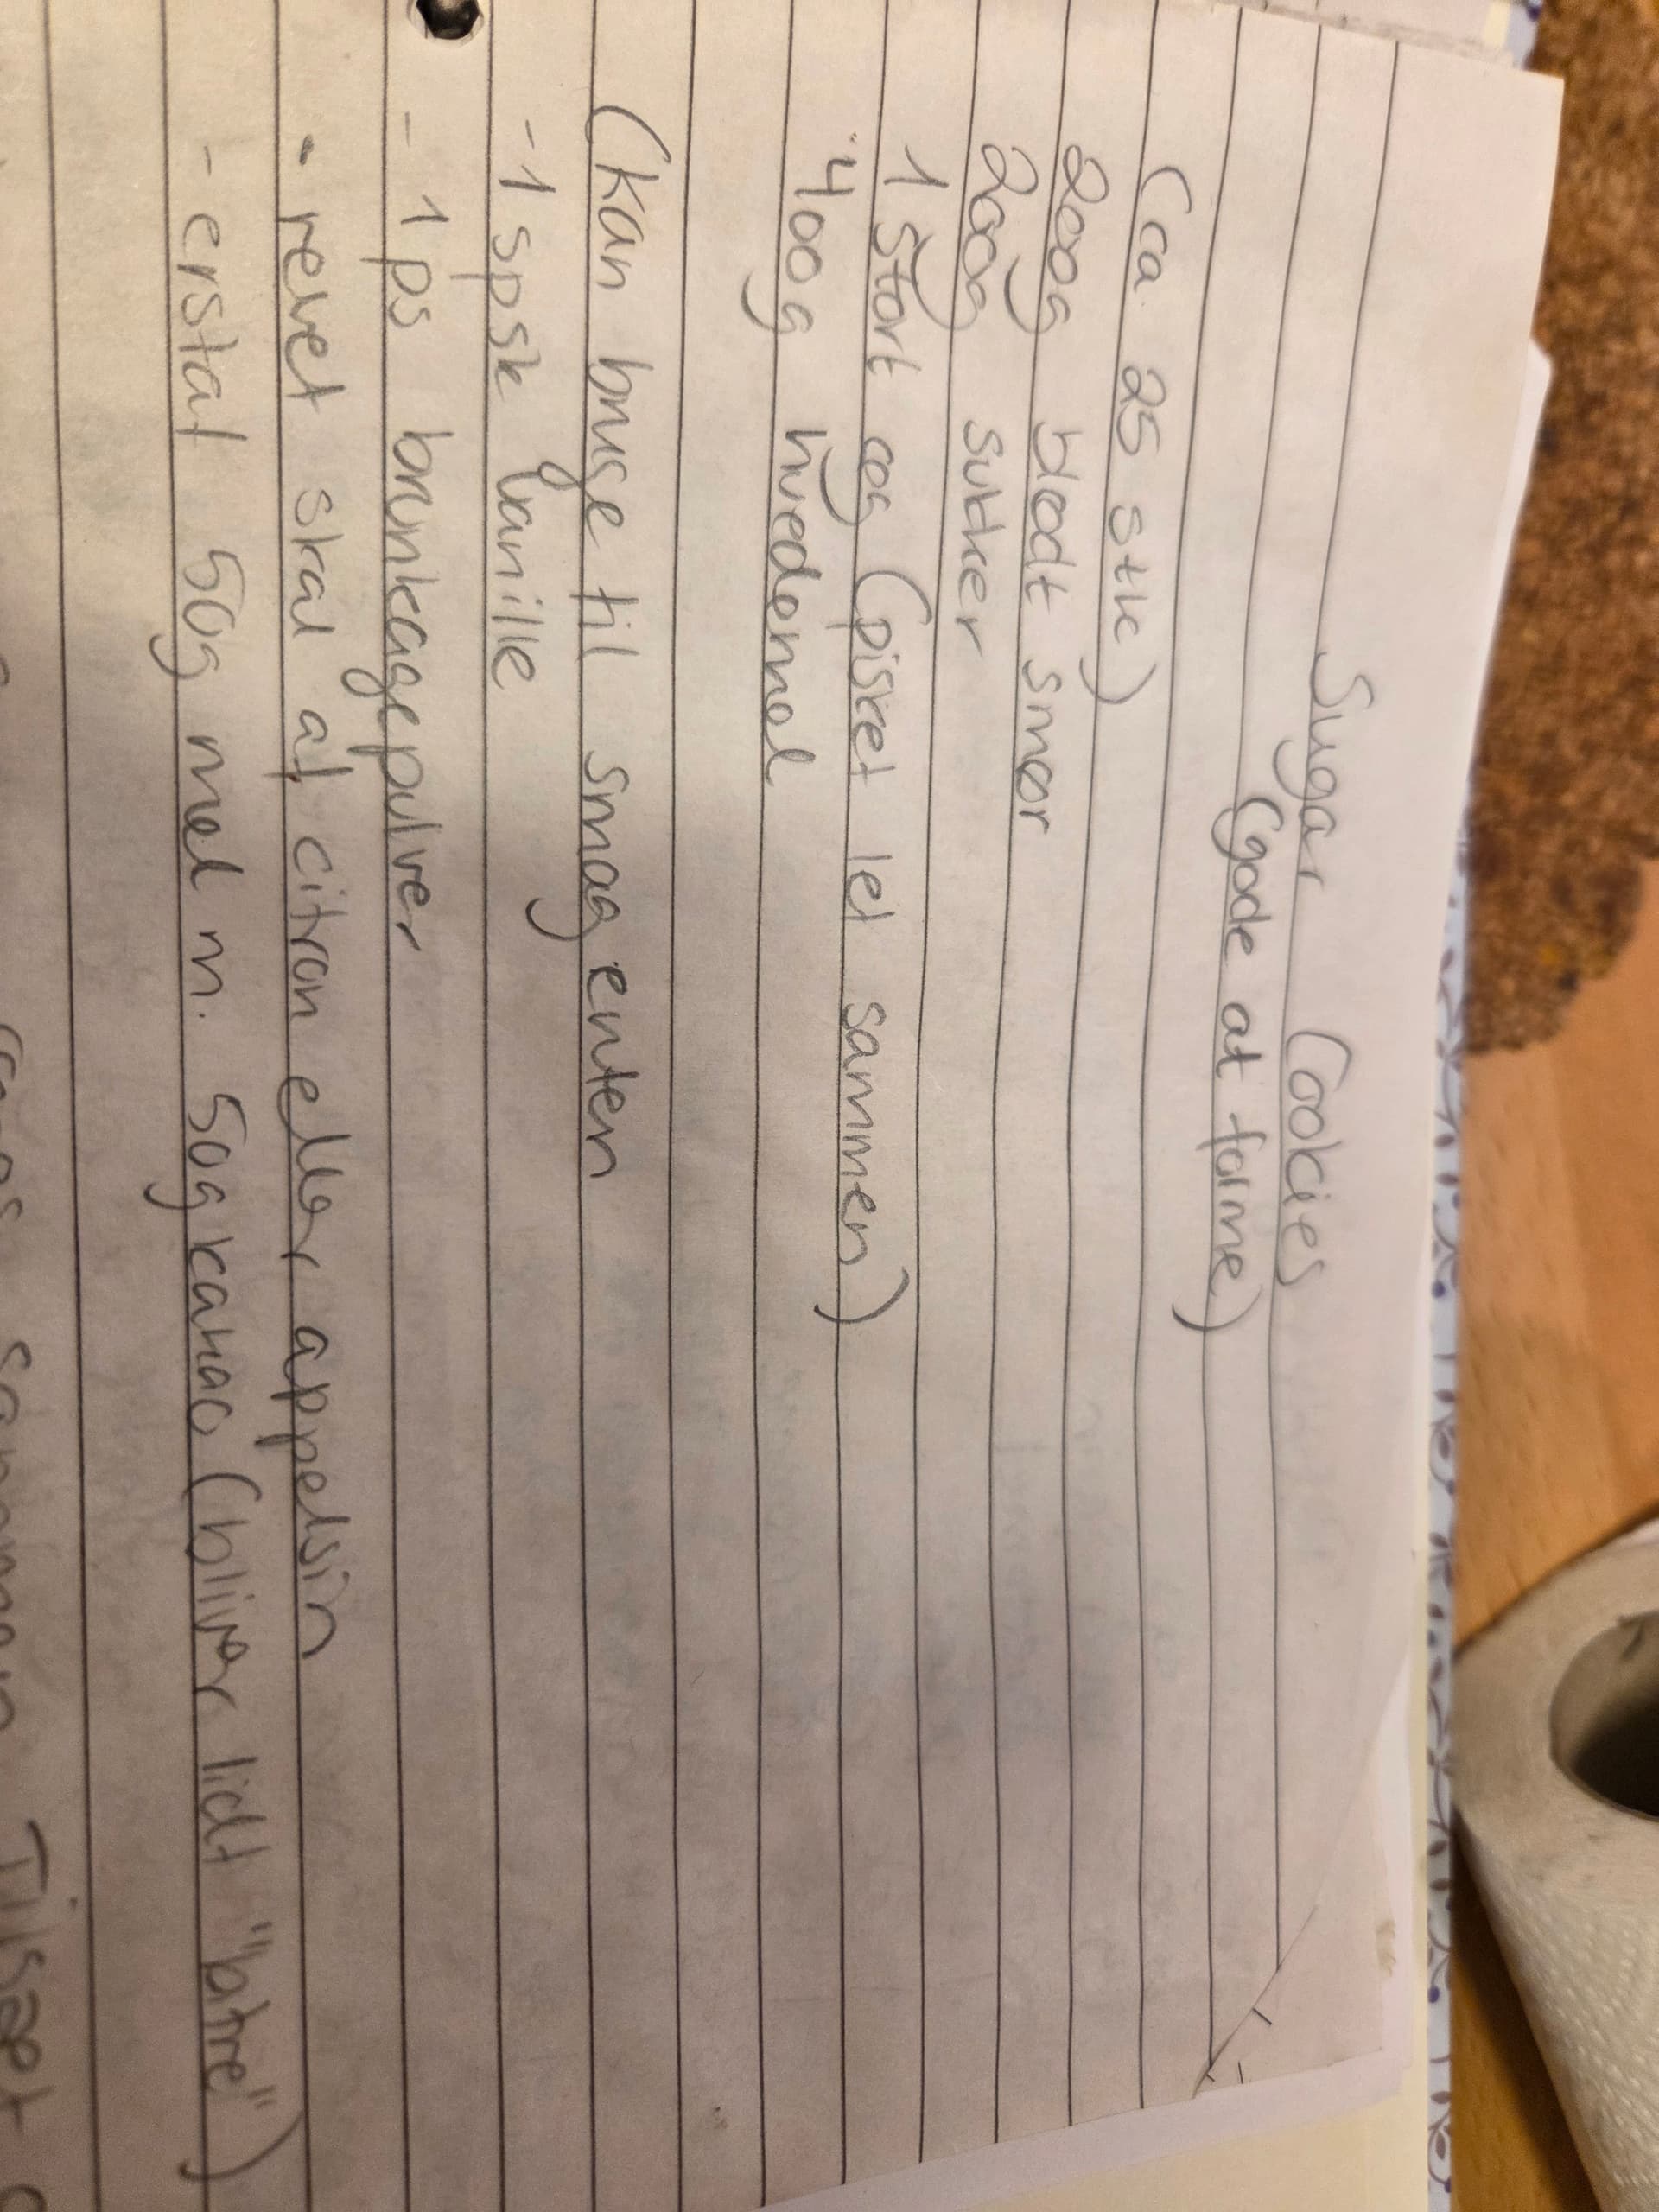 Sugar Cookies
(gode at forme)
(ca. 25 stk)
200g blødt smør
200g sukker
1 stort æg (pisket let sammen)
400g hvedemel
(kan bruge til smag enten
-1 spsk vanille
- 1 ps brunkagepulver
- revet skal af citron eller appelsin
- erstat 50g mel m. 50g kakao (bliver lidt "bitre")
sammen. Tilsæt